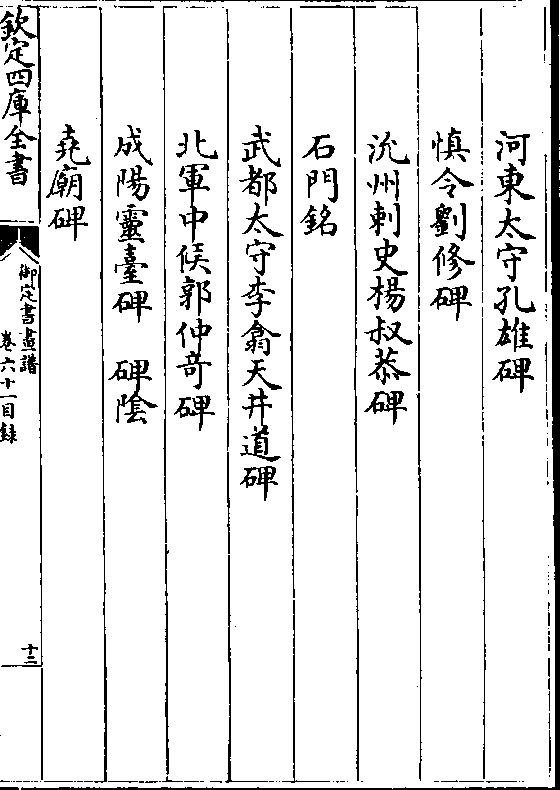 河東太守孔雄碑
慎令劉修碑
沇州刺史楊叔恭碑
石門銘
武都太守李翕天井道碑
北軍中候郭仲奇碑
成陽靈臺碑　碑陰
堯廟碑
欽定四庫全書
御定書畫譜
卷六十一目錄
十二